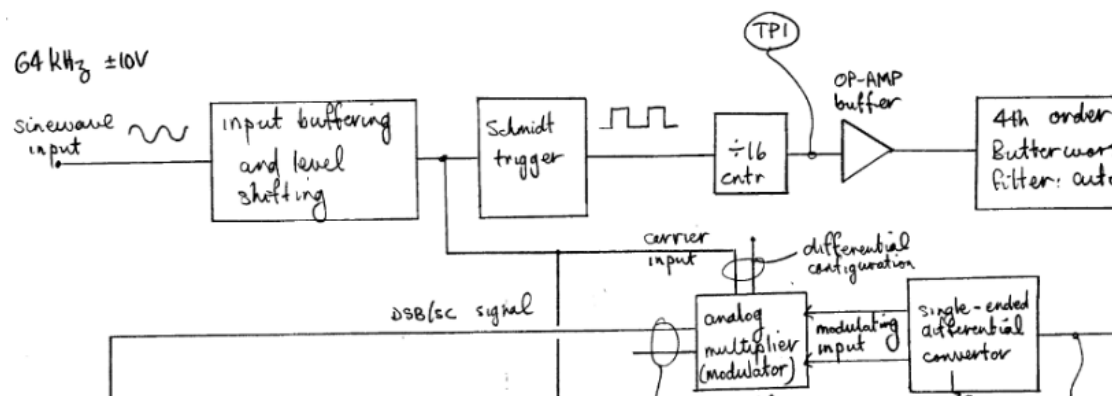 TP1
64 kHz ±10V
sinewave
input
input buffering
and level
shifting
Schmidt
trigger
÷16
cntr
OP-AMP
buffer
4th order
filter:
carrier
input
differential
configuration
DSB/SC signal
analog
multiplier
(modulator)
modulating
input
single-ended
differential
convertor